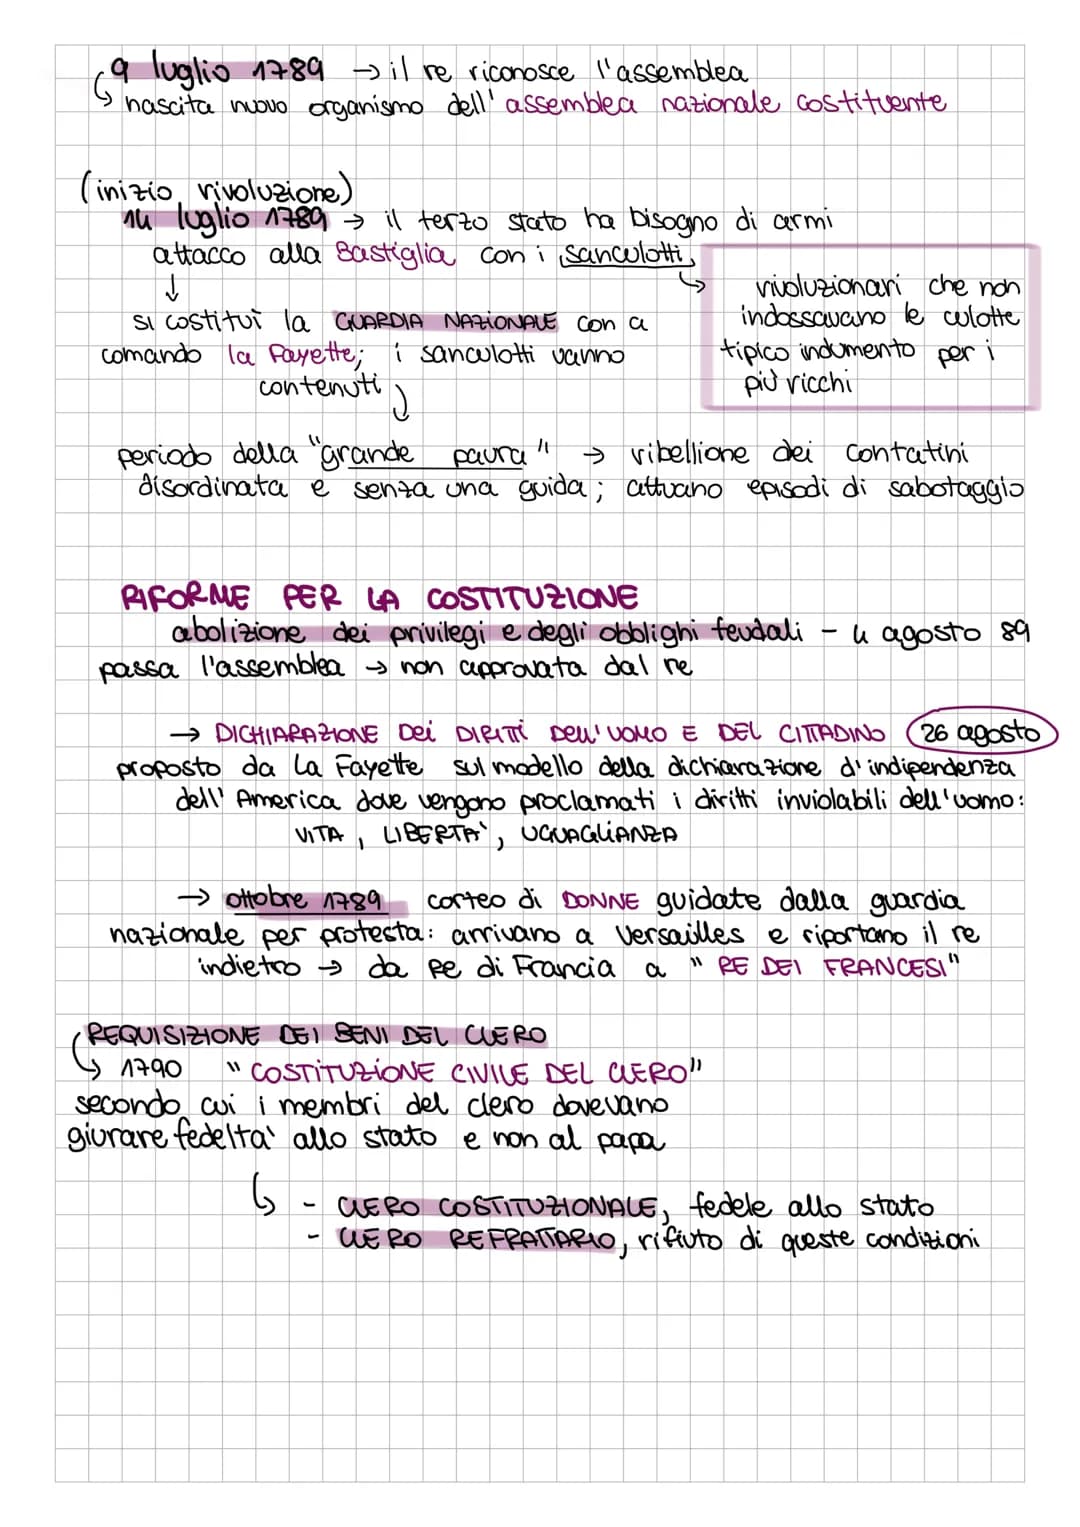 9 luglio 1789 → il re riconosce l'assemblea
↳ nascita nuovo organismo dell' assemblea nazionale costituente
(inizio rivoluzione)
14 luglio 1789 → il terzo stato ha bisogno di armi
attacco alla Bastiglia con i sanculotti
↓
si costituì la GUARDIA NAZIONALE con a
comando la Fayette; i sanculotti vanno
contenuti
↳ rivoluzionari che non
indossavano le culotte
tipico indumento per i
più ricchi
periodo della "grande paura" → ribellione dei contatini
disordinata e senza una guida; attuano episodi di sabotaggio
RIFORME PER LA COSTITUZIONE
abolizione dei privilegi e degli obblighi feudali - 4 agosto 89
passa l'assemblea → non approvata dal re
→ DICHIARAZIONE DEI DIRITTI DELL'UOMO E DEL CITTADINO 26 agosto
proposto da La Fayette sul modello della dichiarazione d'indipendenza
dell' America dove vengono proclamati i diritti inviolabili dell'uomo:
VITA, LIBERTA', UGUAGLIANZA
→ ottobre 1789 corteo di DONNE guidate dalla guardia
nazionale per protesta: arrivano a Versailles e riportano il re
indietro → da Re di Francia a "RE DEI FRANCESI"
REQUISIZIONE DEI BENI DEL CLERO
↳ 1790 "COSTITUZIONE CIVILE DEL CLERO"
secondo cui i membri del clero dovevano
giurare fedelta' allo stato e non al papa
↳ - CLERO COSTITUZIONALE, fedele allo stato
- CLERO REFRATTARIO, rifiuto di queste condizioni